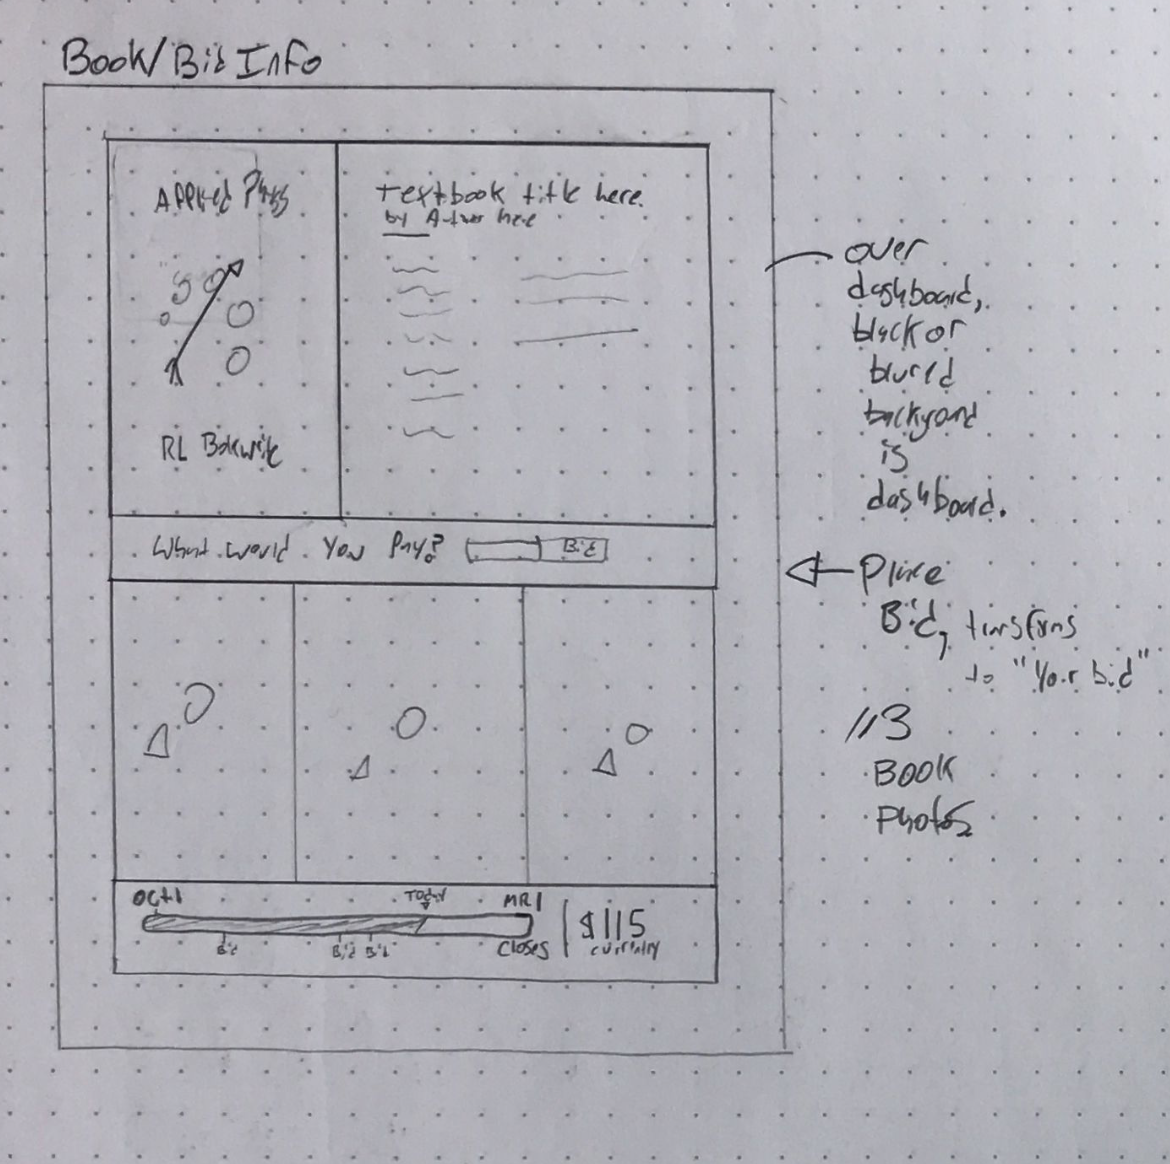 Book/Bid Info
Applied Phys
RL Bokwite
Textbook title here.
by Author here
What would You Pay?
Bid
OCt 1
TODAY
MR 1
Bid
Bid
Bid
Closes
$115
currently
over
dashboard,
black or
blured
background
is
dashboard.
Place
Bid, transforms
to "Your bid"
3
BOOK
Photos